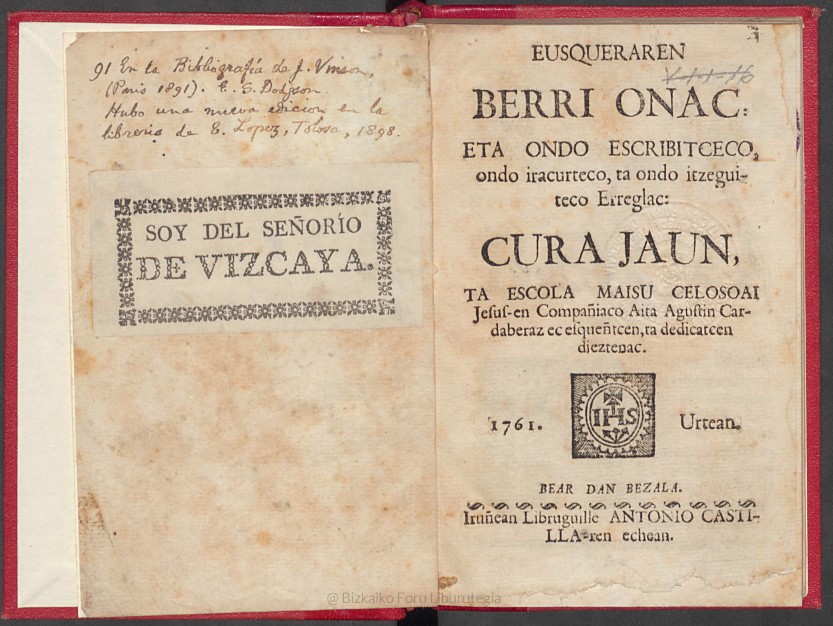 91 En la Bibliografía de J. Vinson,
(Paris 1891). E. S. Dodgson.
Hubo una nueva edicion en la
libreria de E. Lopez, Tolosa, 1898.
SOY DEL SEÑORÍO
DE VIZCAYA.
EUSQUERAREN
BERRI ONAC:
ETA ONDO ESCRIBITCECO,
ondo iracurteco, ta ondo itzegui-
teco Erreglac:
CURA JAUN,
TA ESCOLA MAISU CELOSOAI
Jesus-en Compañiaco Aita Agustin Car-
daberaz ec esqueñtcen, ta dedicatcen
dieztenac.
1761.
IHS
Urtean.
BEAR DAN BEZALA.
Iruñean Libruguille ANTONIO CASTI-
LLA-ren echean.
@ Bizkaiko Foru Liburutegia